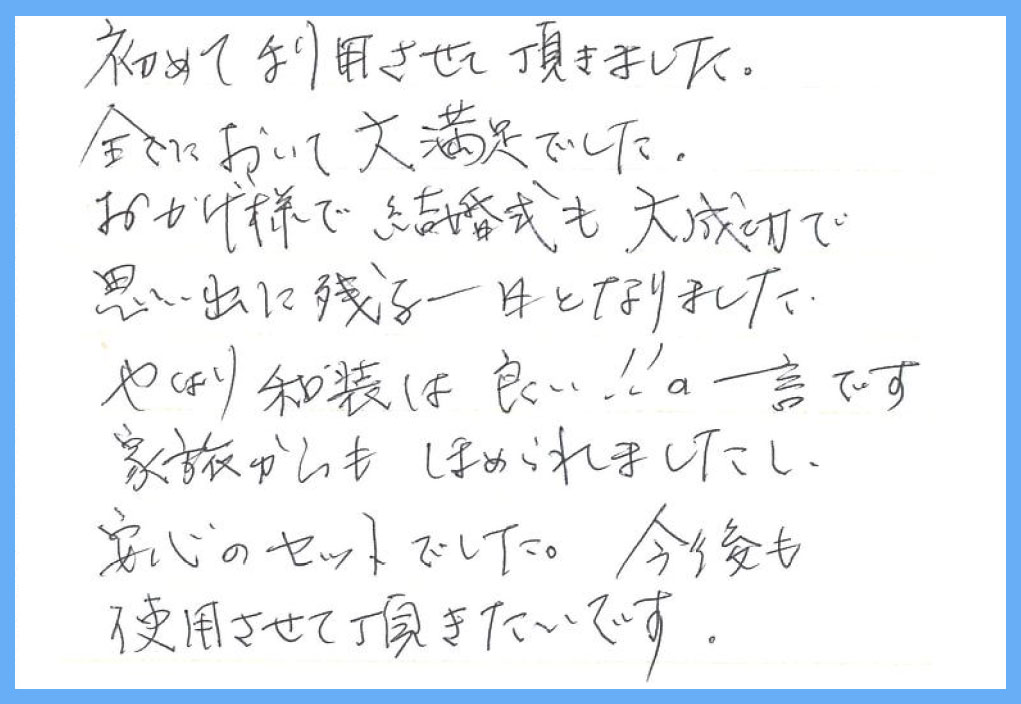 初めて利用させて頂きました。
全てにおいて大満足でした。
おかげ様で結婚式も大成功で
思い出に残る一日となりました.
やはり和装は良い!!の一言です
家族からもほめられましたし、
安心のセットでした。今後も
使用させて頂きたいです.